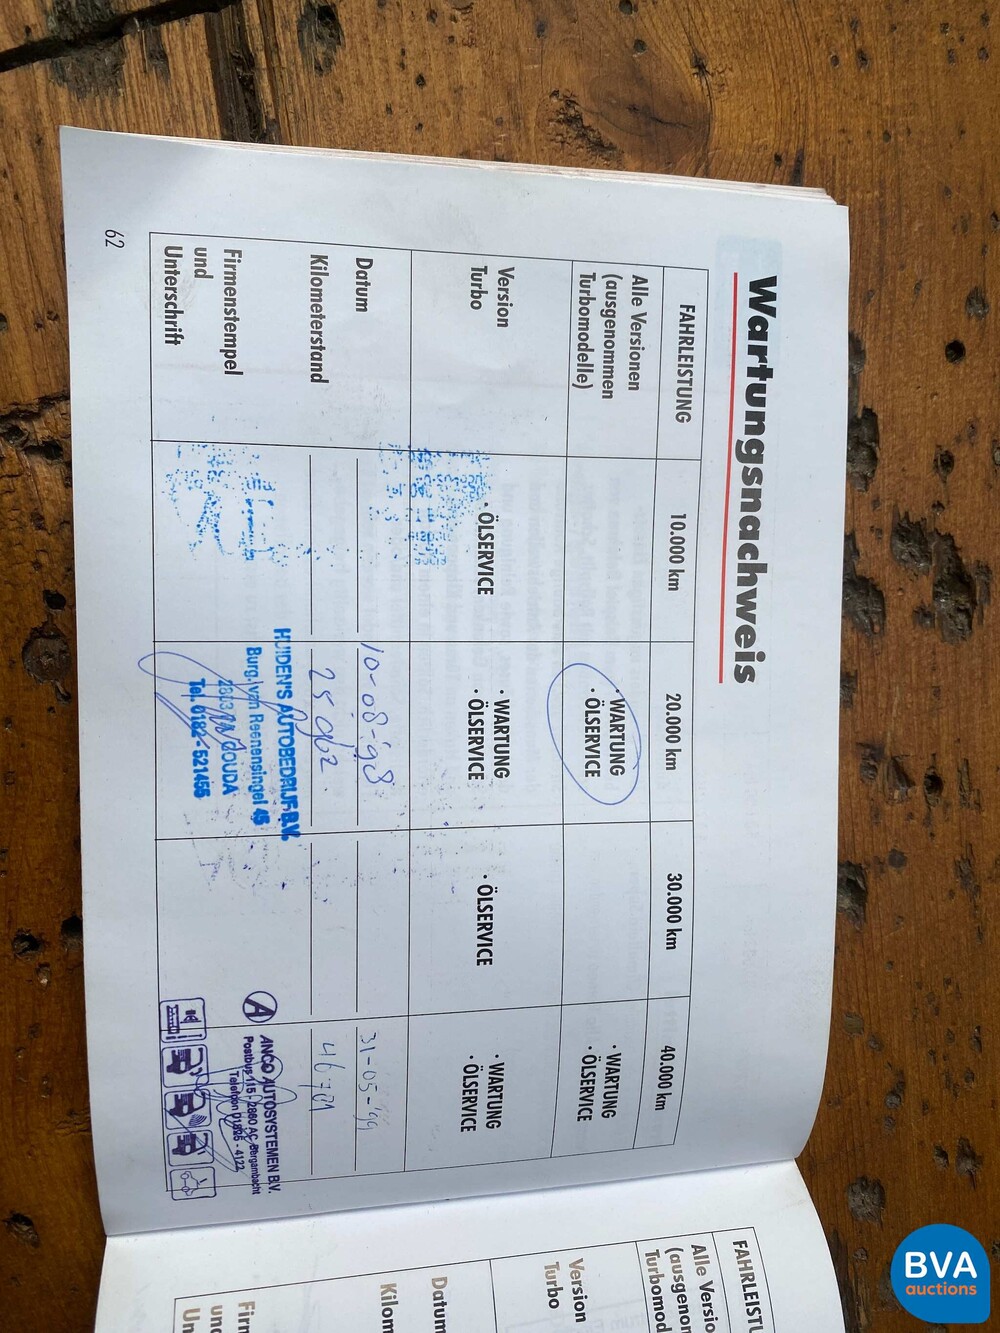 Wartungsnachweis
FAHRLEISTUNG
10.000 km
20.000 km
30.000 km
40.000 km
Alle Versionen
(ausgenommen
Turbomodelle)
· WARTUNG
· ÖLSERVICE
· WARTUNG
· ÖLSERVICE
Version
Turbo
· ÖLSERVICE
· WARTUNG
· ÖLSERVICE
· ÖLSERVICE
· WARTUNG
· ÖLSERVICE
Datum
10-08-'98
31-05-'99
Kilometerstand
Firmenstempel
und
Unterschrift
HUIDEN'S AUTOBEDRIJF B.V.
Burg. van Reenensingel 45
GOUDA
Tel. 0182-521455
A
ANCO AUTOSYSTEMEN B.V.
Postbus 115 - 2860 AC Bergambacht
Telefoon
62
FAHRLEISTU
Alle Versio
(ausgenon
Turbomod
Version
Turbo
Datum
Kilom
Firm
und
Un
BVA
auctions